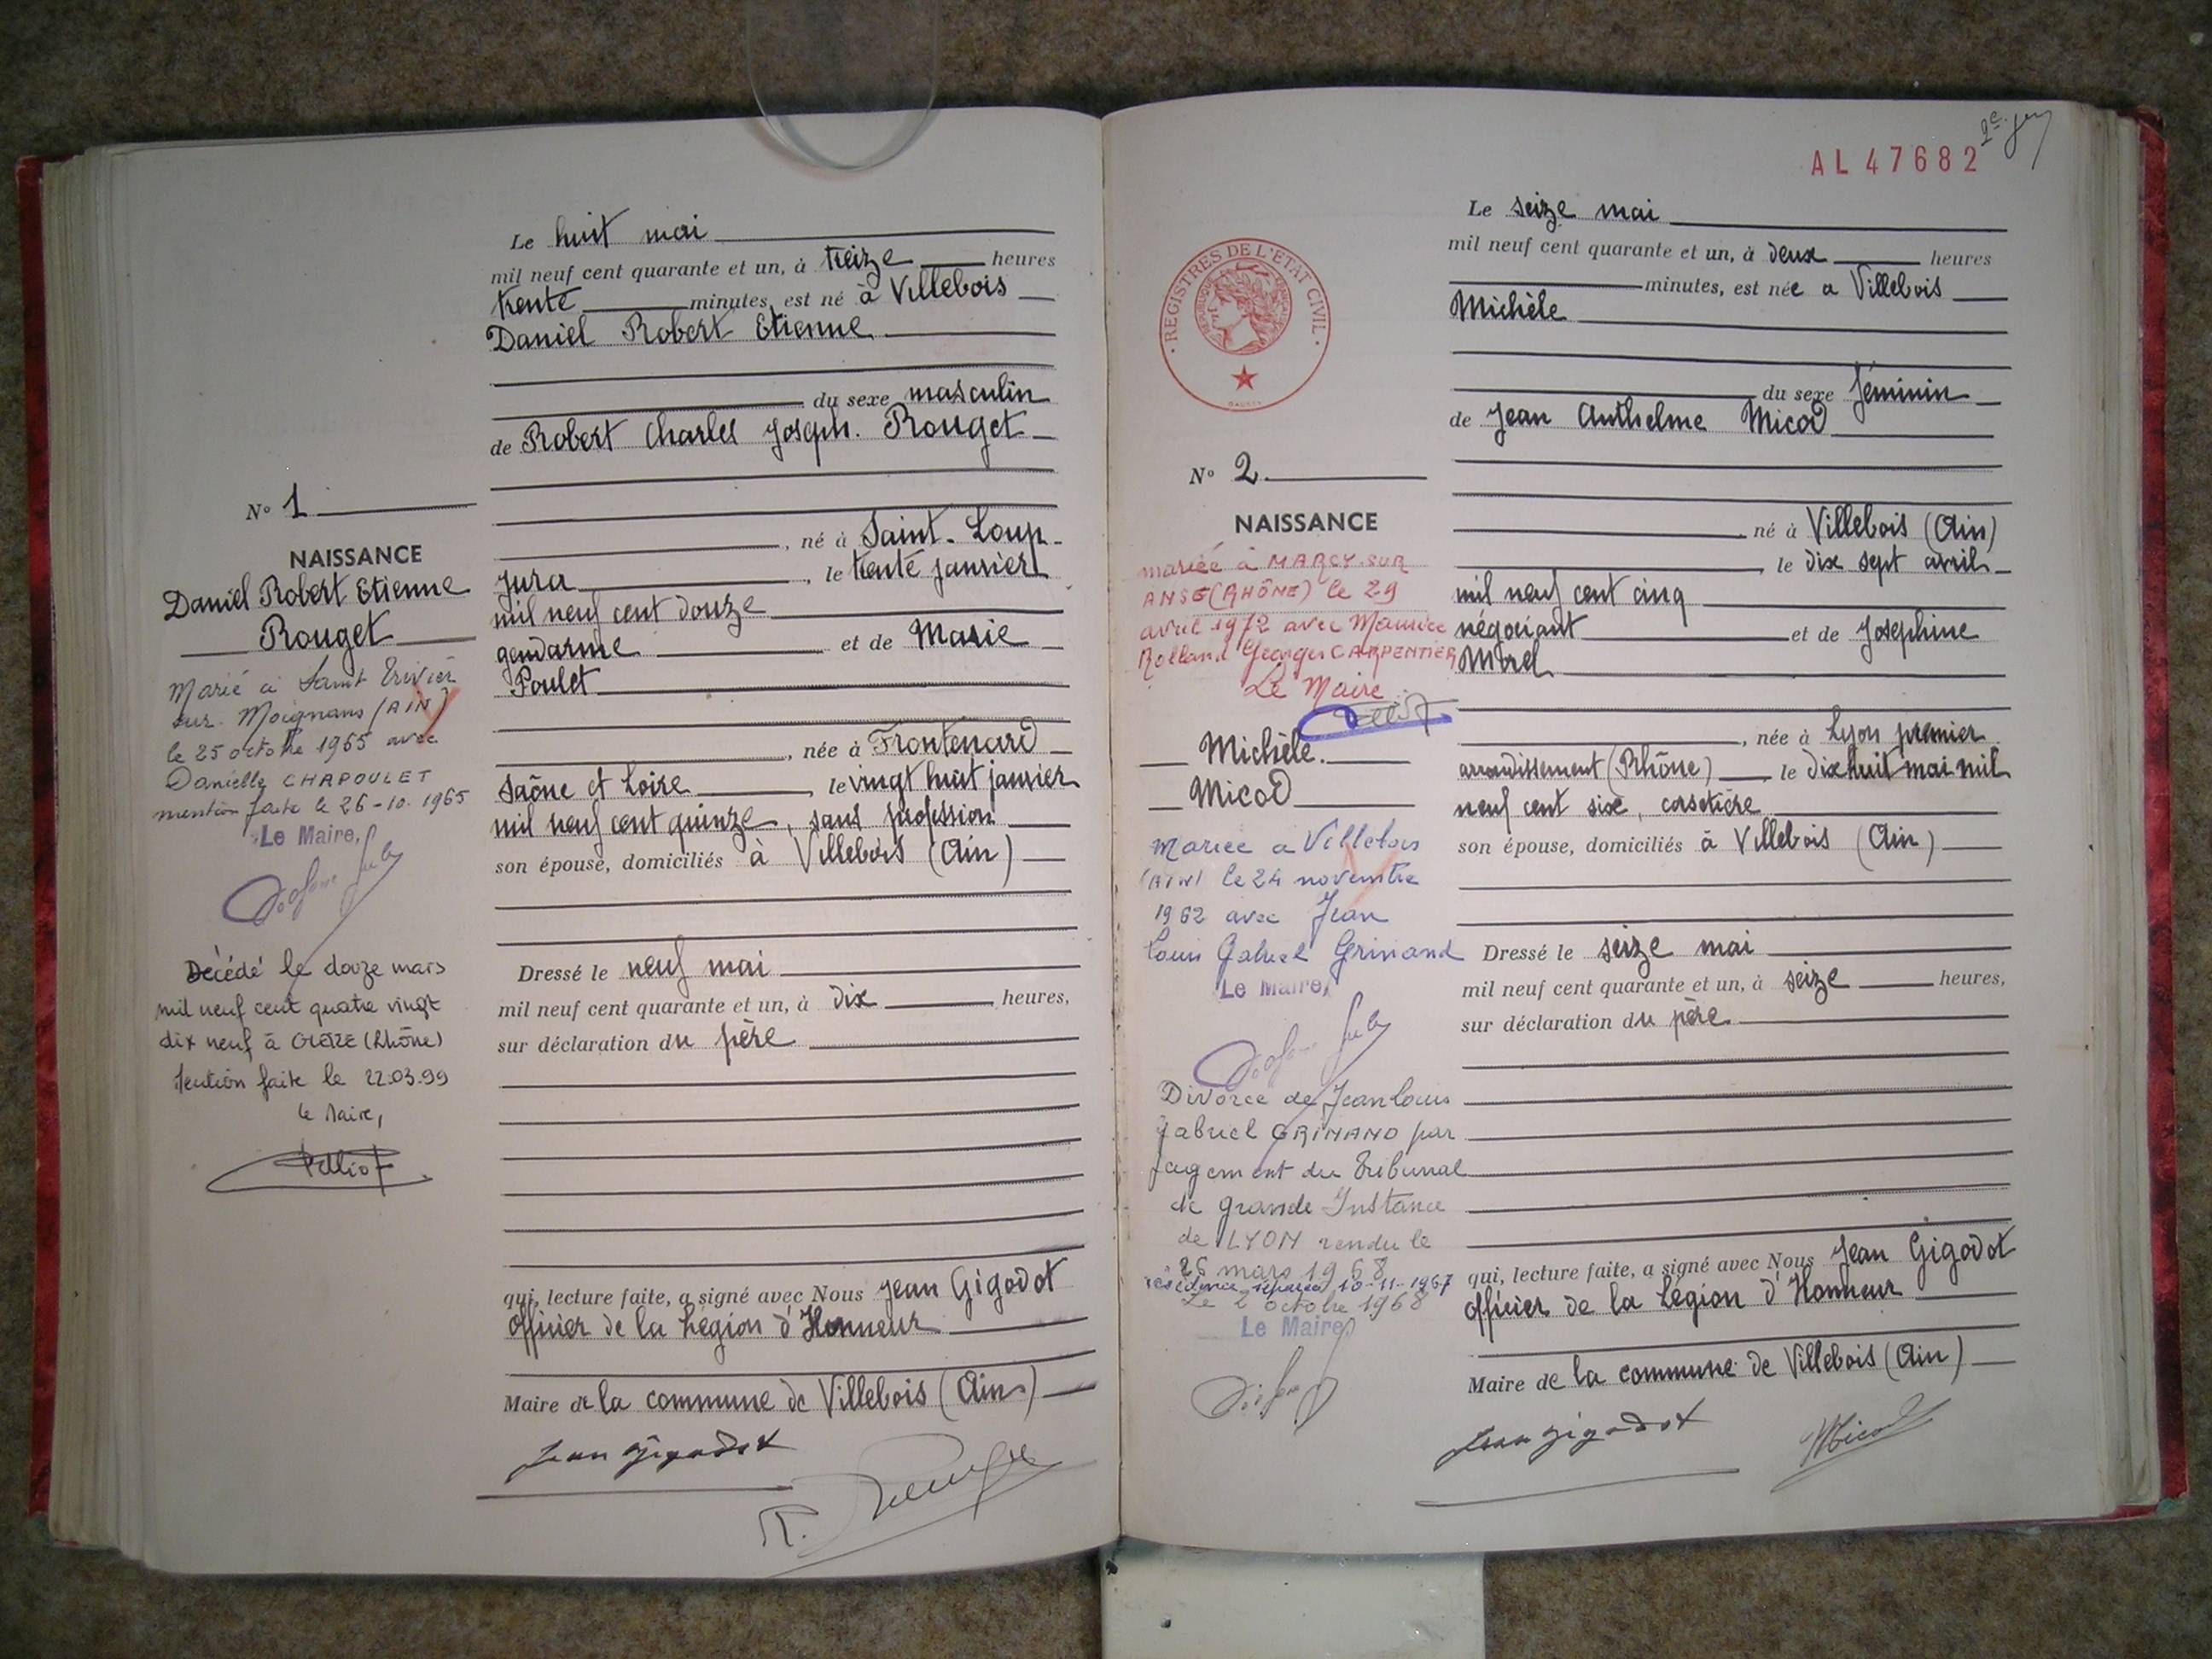 Le huit mai
mil neuf cent quarante et un, à treize heures
trente minutes, est né à Villebois
Daniel Robert Etienne
du sexe masculin
de Robert Charles Joseph. Rouget
N° 1
NAISSANCE
Daniel Robert Etienne
Rouget
Marié à Saint Trivier
sur. Moignans (AIN)
le 25 octobre 1965 avec
Danielle CHAPOULET
mention faite le 26-10-1965
Le Maire,
Décédé le douze mars
mil neuf cent quatre vingt
dix neuf à (Rhône)
Mention faite le 22.03.99
Le Maire,
Pelliot
, né à Saint-Loup-
Jura , le trente janvier
mil neuf cent douze
gendarme et de Marie
Poulet
, née à Frontenard
Saône et Loire le vingt huit janvier
mil neuf cent quinze, sans profession
son épouse, domiciliés à Villebois (Ain)
Dressé le neuf mai
mil neuf cent quarante et un, à dix heures,
sur déclaration du père
qui, lecture faite, a signé avec Nous Jean Gigodot
Officier de la Légion d'Honneur
Maire de la commune de Villebois (Ain)
Jean Gigodot
R. Rouget
2e
AL 47682
REGISTRES DE L'ETAT CIVIL
Le seize mai
mil neuf cent quarante et un, à deux heures
minutes, est née a Villebois
Michèle
du sexe féminin
de Jean Anthelme Micod
N° 2
NAISSANCE
mariée à MARCY-SUR
ANSE (RHÔNE) le 29
avril 1972 avec Maurice
Rolland Georges CARPENTIER
Le Maire
Michèle.
Micod
Mariée a Villebois
(AIN) le 24 novembre
1962 avec Jean
Louis Gabriel Grinand
Le Maire,
Divorce de Jean Louis
Gabriel GRINAND par
jugement du Tribunal
de grande Instance
de LYON rendu le
26 mars 1968
résidence séparée 10-11-1967
Le 2 octobre 1968
Le Maire,
né à Villebois (Ain)
, le dix sept avril
mil neuf cent cinq
négociant et de Joséphine
Morel
, née à Lyon premier
arrondissement (Rhône) le dix huit mai mil
neuf cent six, corsetière
son épouse, domiciliés à Villebois (Ain)
Dressé le seize mai
mil neuf cent quarante et un, à seize heures,
sur déclaration du père
qui, lecture faite, a signé avec Nous Jean Gigodot
Officier de la Légion d'Honneur
Maire de la commune de Villebois (Ain)
Jean Gigodot
Micod